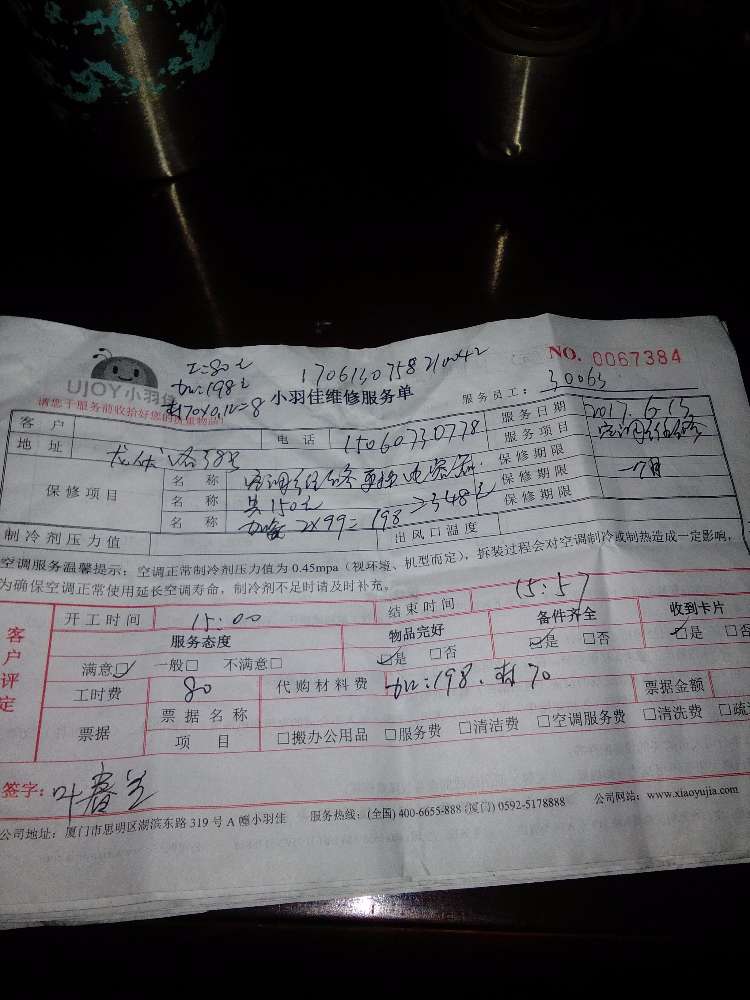 工:80元
加:198元
材70×0.12=8
1706130758210042
NO. 0067384
UJOY小羽佳
请您于服务前收拾好您的贵重物品!
小羽佳维修服务单
服务员工: 30063
客户 电话 15060730778 服务日期 2017.6.13
地址 服务项目 空调维修
保修项目 名称 空调维修 更换电容 保修期限 一个月
名称 共150元 保修期限
名称 2×99=198 348元 保修期限
制冷剂压力值 出风口温度
空调服务温馨提示: 空调正常制冷剂压力值为 0.45mpa (视环境、机型而定), 拆装过程会对空调制冷或制热造成一定影响,
为确保空调正常使用延长空调寿命, 制冷剂不足时请及时补充。
客户评定
开工时间 15:00 结束时间 15:57
服务态度 物品完好 备件齐全 收到卡片
满意☑ 一般□ 不满意□ ☑是 □否 ☑是 □否 ☑是 □否
工时费 80 代购材料费 加:198. 材70 票据金额
票据 票据名称
项目 □搬办公用品 □服务费 □清洁费 □空调服务费 □清洗费 □疏
签字:
公司地址: 厦门市思明区湖滨东路 319 号 A 幢小羽佳 服务热线: (全国) 400-6655-888 (厦门) 0592-5178888 公司网站: www.xiaoyujia.com